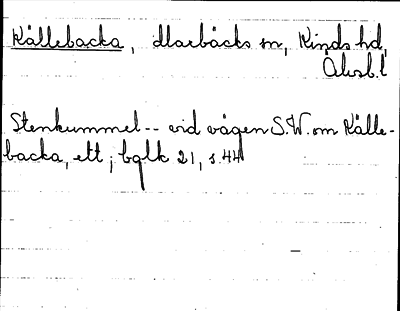 Källebacka, dlarbäcks sn, Kinds hd,
Älvsb. l
Stenkummel -- vid vägen S.W. om Källe-
backa, ett; bglk 21, s. 44